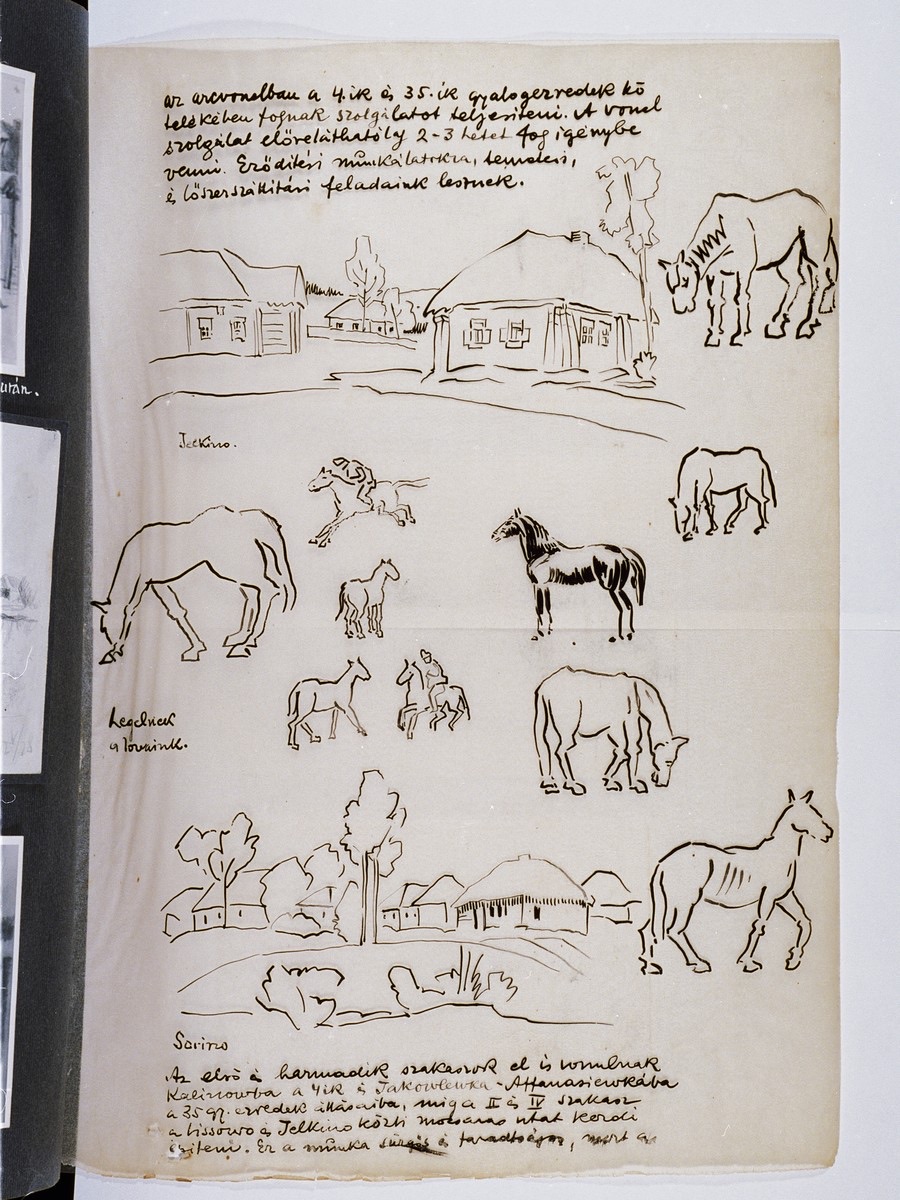 az arcvonalban a 4.ik és 35.ik gyalogezredek kö
telékében fognak szolgálatot teljesiteni. A vonal
szolgálat előreláthatólag 2-3 hetet fog igénybe
venni. Erőditési munkálatokra, temetési,
és lőszerszállitási feladaink lesznek.
Jelkino.
Legelnek
a lovaink.
Sorino
Az első és harmadik szakaszok el is vonulnak
Kalinowba a 4ik és Jakowlewka-Affanasiewkába
a 35 gy. ezredek állásaiba, mig a II és IV szakasz
a Lissowo és Jelkino közti mocsaras utat kezdi
épiteni. Ez a munka sürgős és faradtságos, mert a
urán.